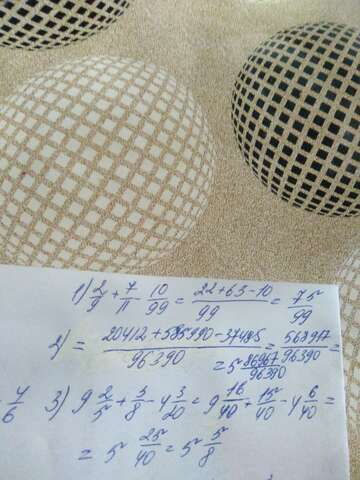 1) 2/9 + 7/11 - 10/99 = (22+63-10)/99 = 75/99
2) = (20412+585990-37485)/96390 = 568917/96390 =
= 5 86967/96390
4/6 3) 9 2/5 + 5/8 - 4 3/20 = 9 16/40 + 15/40 - 4 6/40 =
= 5 25/40 = 5 5/8